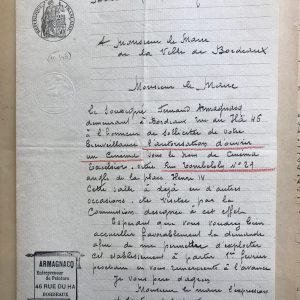 A Monsieur le Maire
de la Ville de Bordeaux
Monsieur le Maire
Le Soussigné Fernand Armagnacq
demeurant à Bordeaux rue du Hâ 46
à l'honneur de sollicité de votre
bienveillance l'autorisation d'ouvrir
un Cinéma sous le nom de Cinéma
Excelsior, entre Rue n° 29
angle de la place Henri IV
Cette salle à déjà en d'autres
occasions, été visitée par la
Commission désignée à cet effet.
Espérant que vous voudrez bien
accueillir favorablement ma demande
afin de me permettre d'exploiter
cet établissement à partir 1er février
prochain en vous remerciant à l'avance
je vous prie d'agréer
Monsieur le maire l'expression
ARMAGNACQ
Entrepreneur
de Peinture
46 RUE DU HA
BORDEAUX